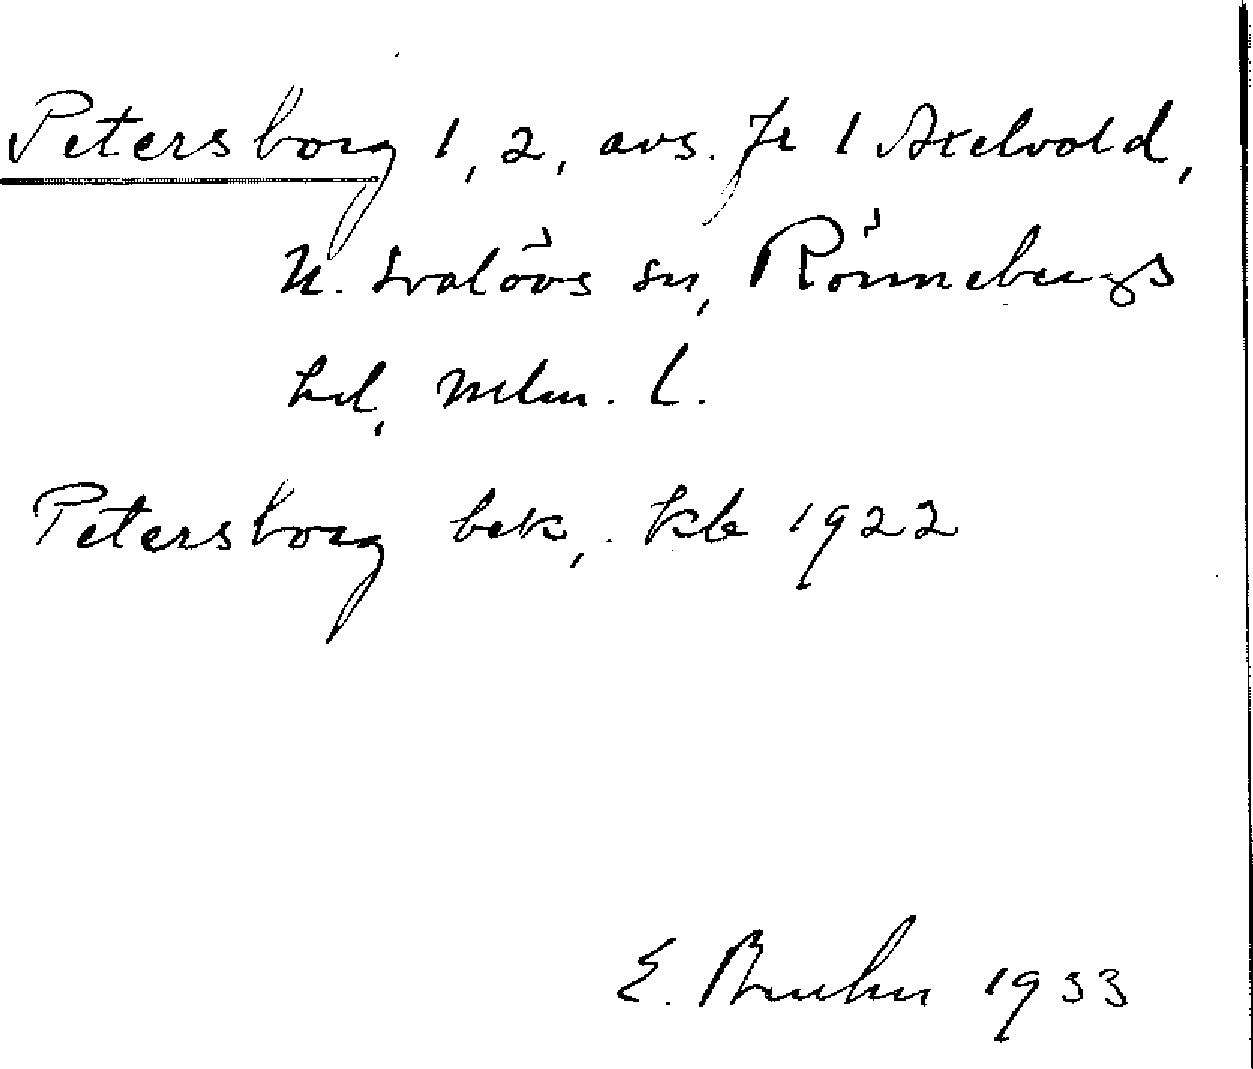 Petersborg 1, 2, avs. fr 1 Axelvold,
N. Svalövs sn, Rönnebergs
hd, Mlm. l.
Petersborg bek, kb 1922
E. Bruhn 1933